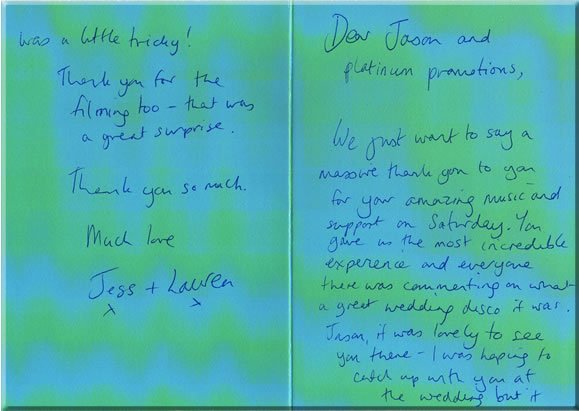 Dear Jason and
platinum promotions,
We just want to say a
massive thank you to you
for your amazing music and
support on Saturday. You
gave us the most incredible
experience and everyone
there was commenting on what
a great wedding disco it was.
Jason, it was lovely to see
you there - I was hoping to
catch up with you at
the wedding but it
was a little tricky!
Thank you for the
filming too - that was
a great surprise.
Thank you so much.
Much love
Jess + Lauren
x x